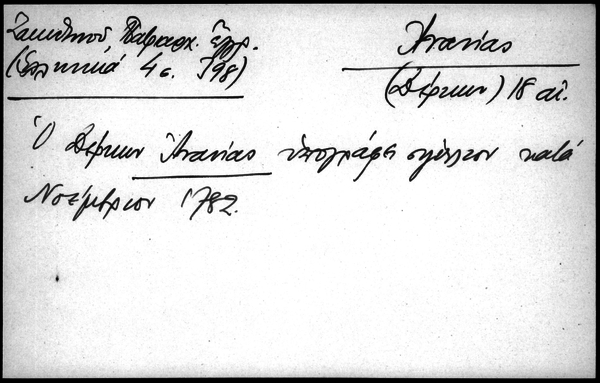 Ζακυθηνοῦ Πατριαρχ. Ἔγγρ.
(Ἑλληνικά 4 σ. 398)
Ἀνανίας
(Δέρκων) 18 αἰ.
Ὁ Δέρκων Ἀνανίας ὑπογράφει σιγίλλιον κατά
Νοέμβριον 1782.